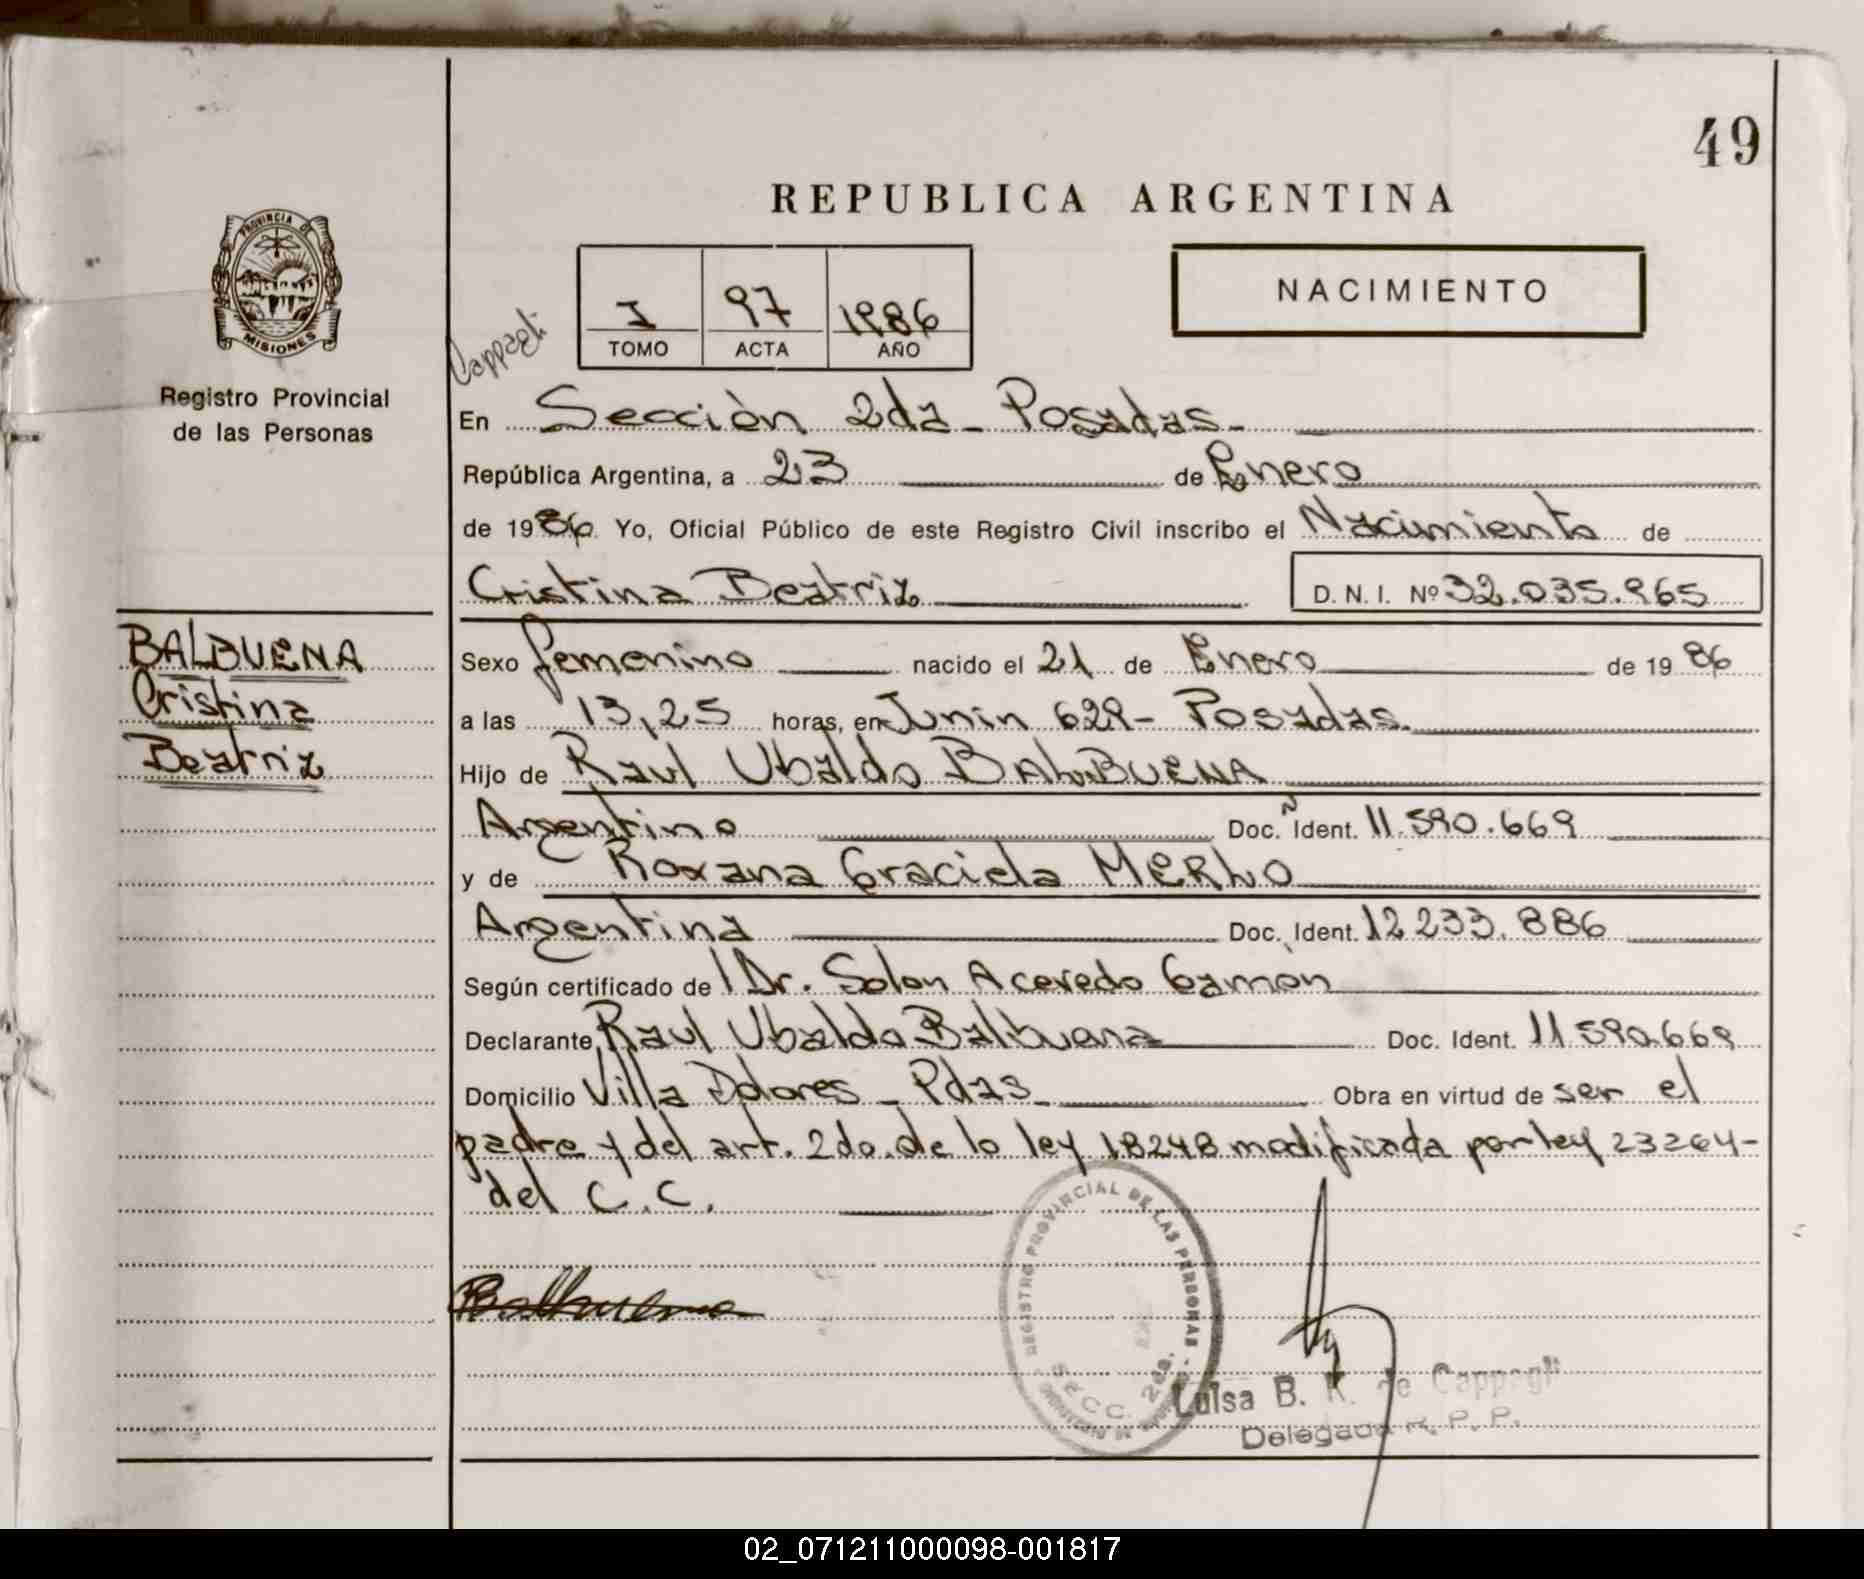 49
REPUBLICA ARGENTINA
PROVINCIA DE
MISIONES
I 97 1986
TOMO ACTA AÑO
NACIMIENTO
Cappagli
Registro Provincial
de las Personas
En Sección 2da - Posadas -
República Argentina, a 23 de Enero
de 1986 Yo, Oficial Público de este Registro Civil inscribo el Nacimiento de
Cristina Beatriz D. N. I. Nº 32.035.965
BALBUENA
Cristina
Beatriz
Sexo femenino nacido el 21 de Enero de 1986
a las 13,25 horas, en Junin 629 - Posadas.
Hijo de Raul Ubaldo BALBUENA
Argentino Doc. Ident. 11.590.669
y de Roxana Graciela MERLO
Argentina Doc. Ident. 12 233.886
Según certificado de Dr. Solon Acevedo Gamon
Declarante Raul Ubaldo Balbuena Doc. Ident. 11.590.669
Domicilio Villa Dolores - Pdas - Obra en virtud de ser el
padre y del art. 2do. de la ley 18248 modificada por ley 23264 -
del C. C.
Balbuena
REGISTRO PROVINCIAL DE LAS PERSONAS
SECC. 2da.
Luisa B. K. de Cappagli
Delegada R. P. P.
02_071211000098-001817